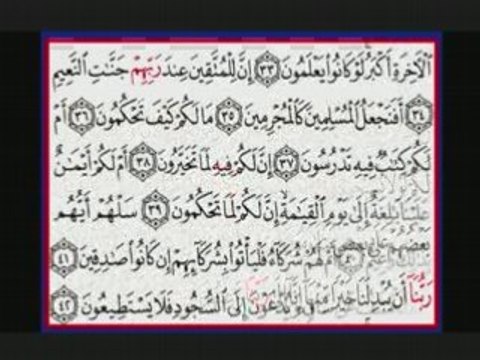 ٱلْأَخِرَةِ أَكْبَرُ لَوْ كَانُوا يَعْلَمُونَ ٣٣ إِنَّ لِلْمُتَّقِينَ عِندَ رَبِّهِمْ جَنَّٰتِ ٱلنَّعِيمِ
٣٤ أَفَنَجْعَلُ ٱلْمُسْلِمِينَ كَٱلْمُجْرِمِينَ ٣٥ مَا لَكُمْ كَيْفَ تَحْكُمُونَ ٣٦ أَمْ
لَكُمْ كِتَٰبٌ فِيهِ تَدْرُسُونَ ٣٧ إِنَّ لَكُمْ فِيهِ لَمَا تَخَيَّرُونَ ٣٨ أَمْ لَكُمْ أَيْمَٰنٌ
عَلَيْنَا بَٰلِغَةٌ إِلَىٰ يَوْمِ ٱلْقِيَٰمَةِ إِنَّ لَكُمْ لَمَا تَحْكُمُونَ ٣٩ سَلْهُمْ أَيُّهُم
أَمْ لَهُمْ شُرَكَاءُ فَلْيَأْتُوا بِشُرَكَائِهِمْ إِن كَانُوا صَٰدِقِينَ ٤١
رَبُّنَا أَن يُبْدِلَنَا خَيْرًا مِّنْهَا إِلَى ٱلسُّجُودِ فَلَا يَسْتَطِيعُونَ ٤٢